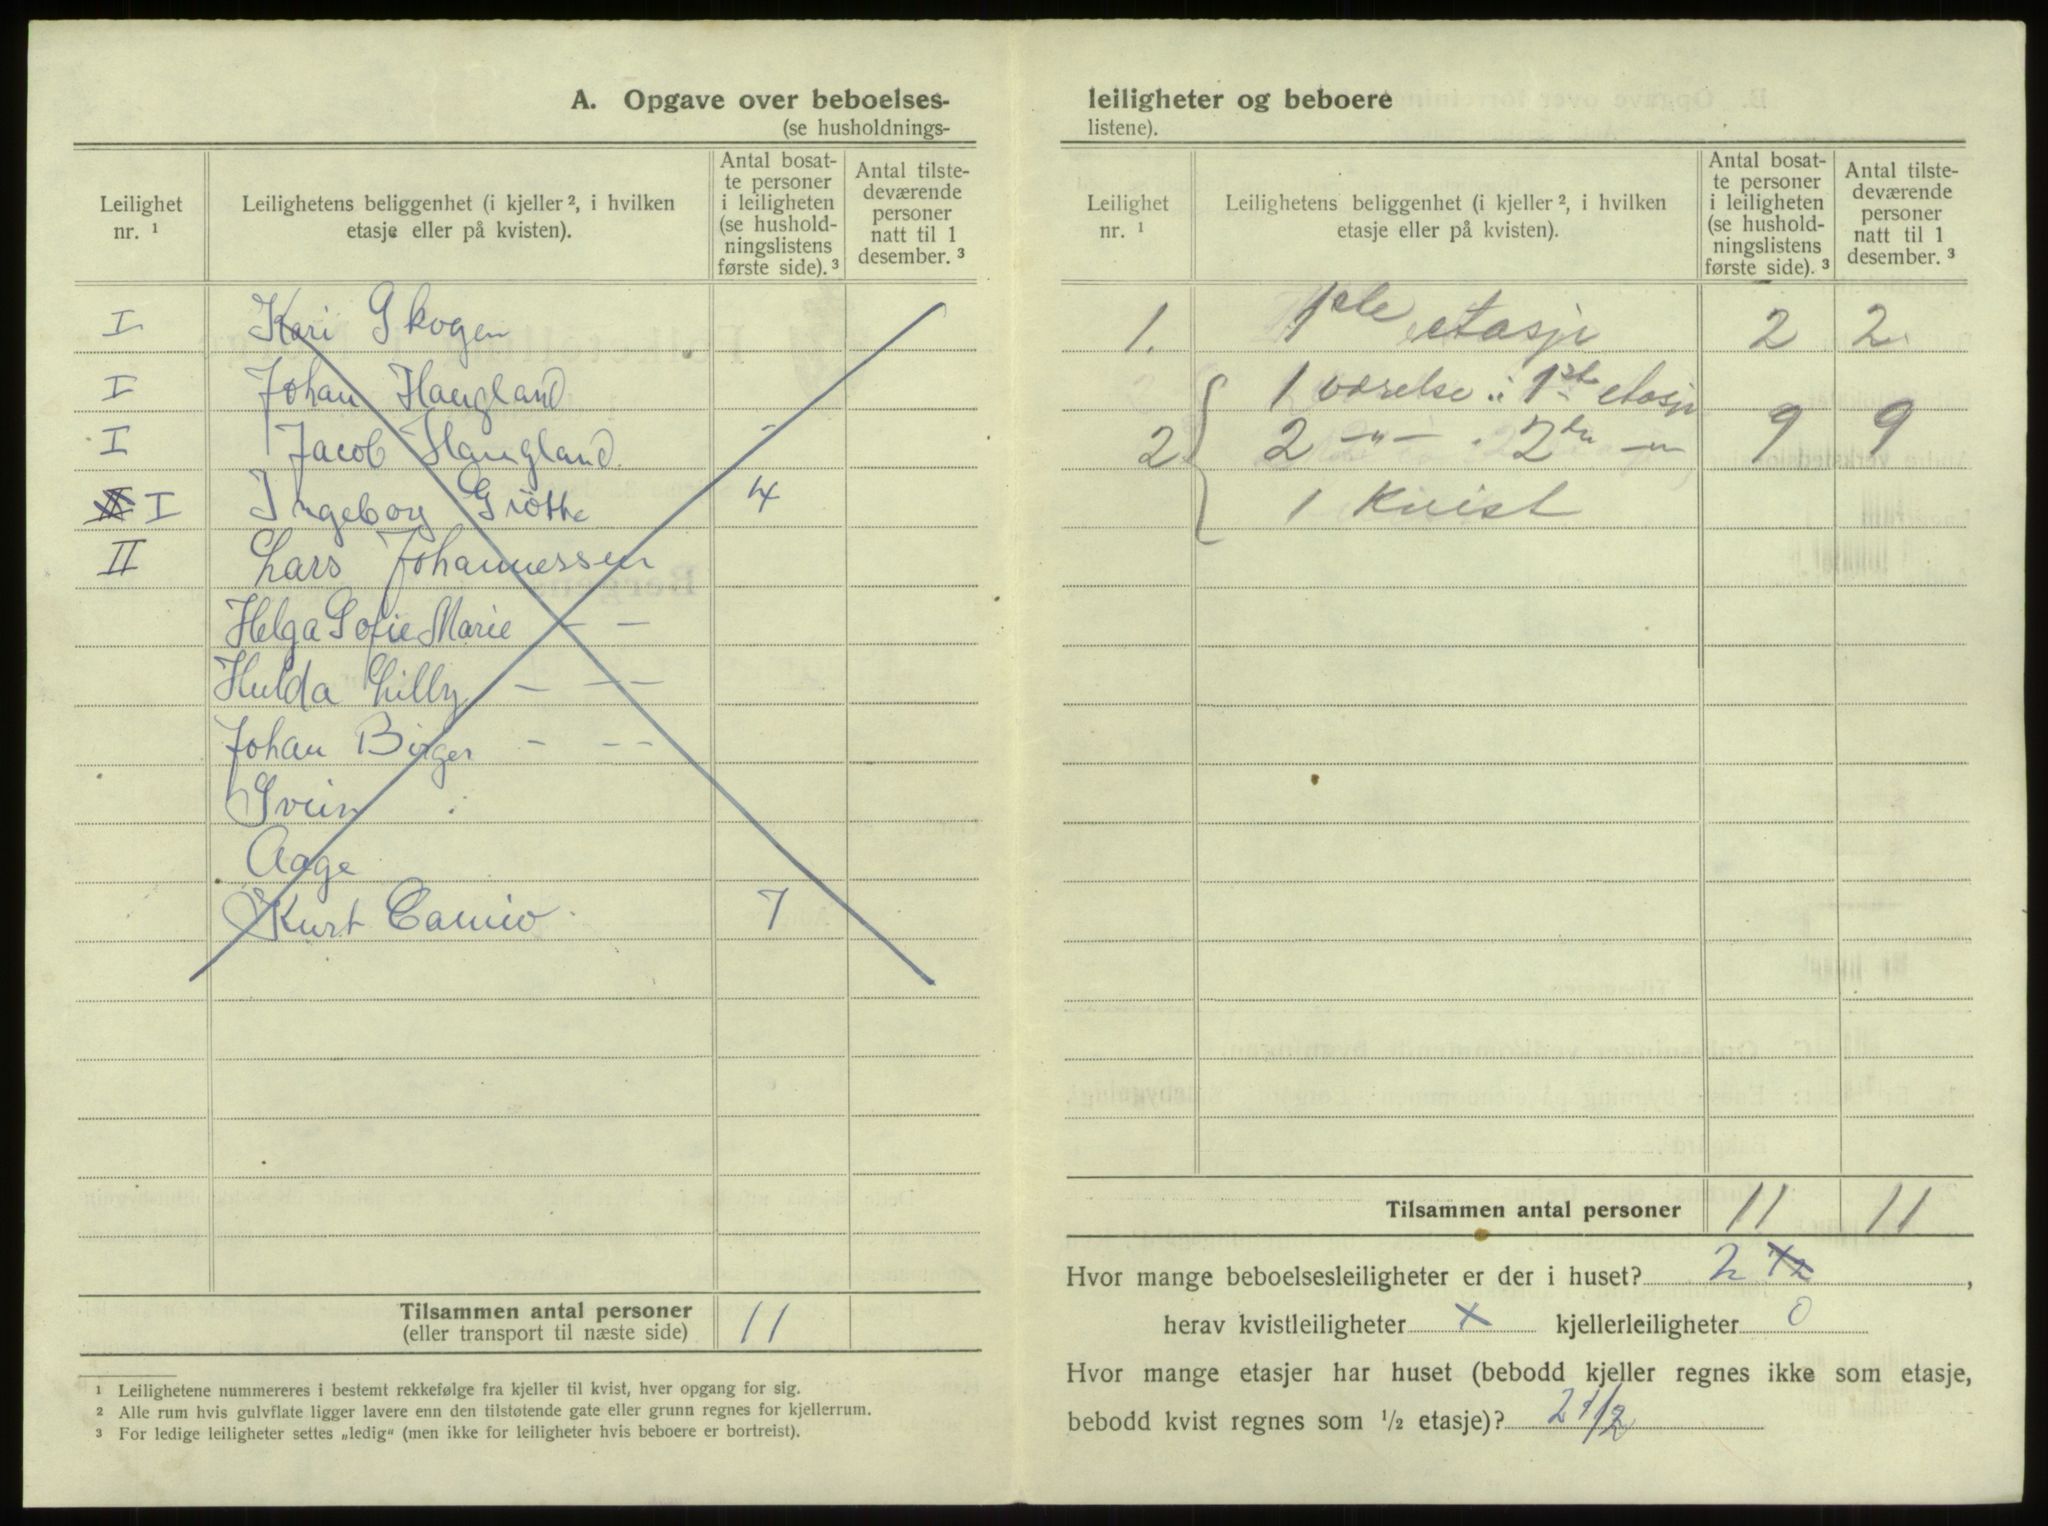 A. Opgave over beboelses-
(se husholdnings-
Leilighet nr. ¹
Leilighetens beliggenhet (i kjeller ², i hvilken etasje eller på kvisten).
Antal bosat-te personer i leiligheten (se hushold-ningslistens første side). ³
Antal tilste-deværende personer natt til 1 desember. ³
I Kari Skogen
I Johan Haugland
I Jacob Haugland -
I Ingeborg 4
II Lars Johannessen
Helga Sofie Marie — —
Hulda Lilly — — —
Johan Birger — — —
Svein
Aage
Kurt 7
Tilsammen antal personer 11
(eller transport til næste side)
¹ Leilighetene nummereres i bestemt rekkefølge fra kjeller til kvist, hver opgang for sig.
² Alle rum hvis gulvflate ligger lavere enn den tilstøtende gate eller grunn regnes for kjellerrum.
³ For ledige leiligheter settes „ledig" (men ikke for leiligheter hvis beboere er bortreist).
leiligheter og beboere
listene).
Leilighet nr. ¹
Leilighetens beliggenhet (i kjeller ², i hvilken etasje eller på kvisten).
Antal bosat-te personer i leiligheten (se hushold-ningslistens første side). ³
Antal tilste-deværende personer natt til 1 desember. ³
1. 1ste etasje 2 2
1 værelse i 1ste etasje
2 2 —"— i 2den —"— 9 9
1 Kvist
Tilsammen antal personer 11 11
Hvor mange beboelsesleiligheter er der i huset? 2,
herav kvistleiligheter x kjellerleiligheter 0
Hvor mange etasjer har huset (bebodd kjeller regnes ikke som etasje,
bebodd kvist regnes som ½ etasje)? 2 1/2